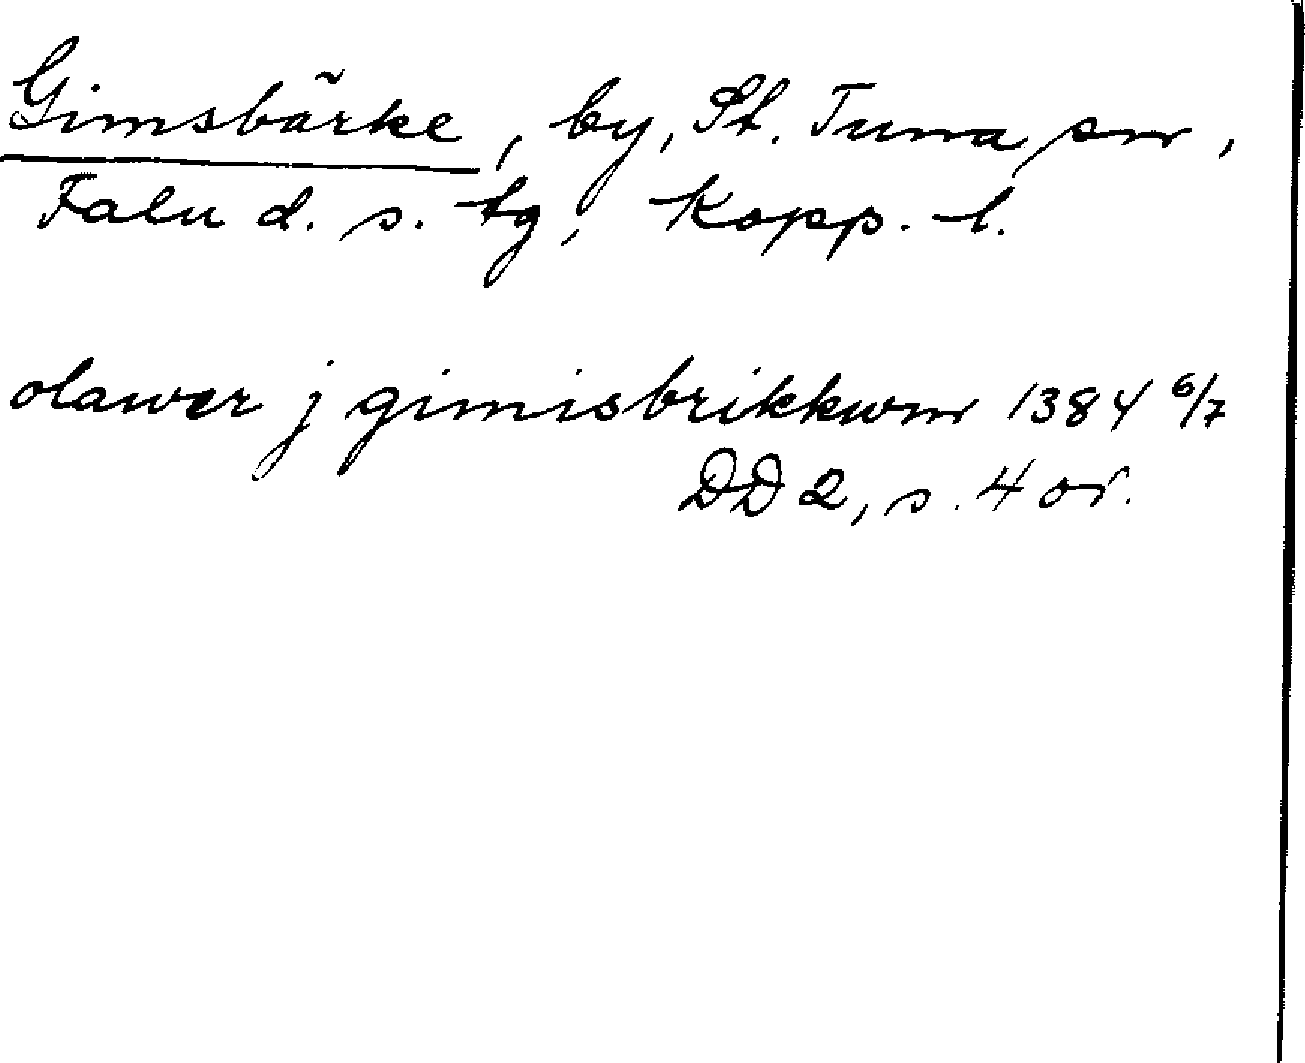 Gimsbärke, by, St. Tuna sn,
Falu d. s. tg, Kopp. l.
olawer j gimisbrikkwm 1384 6/7
DD 2, s. 4 or.